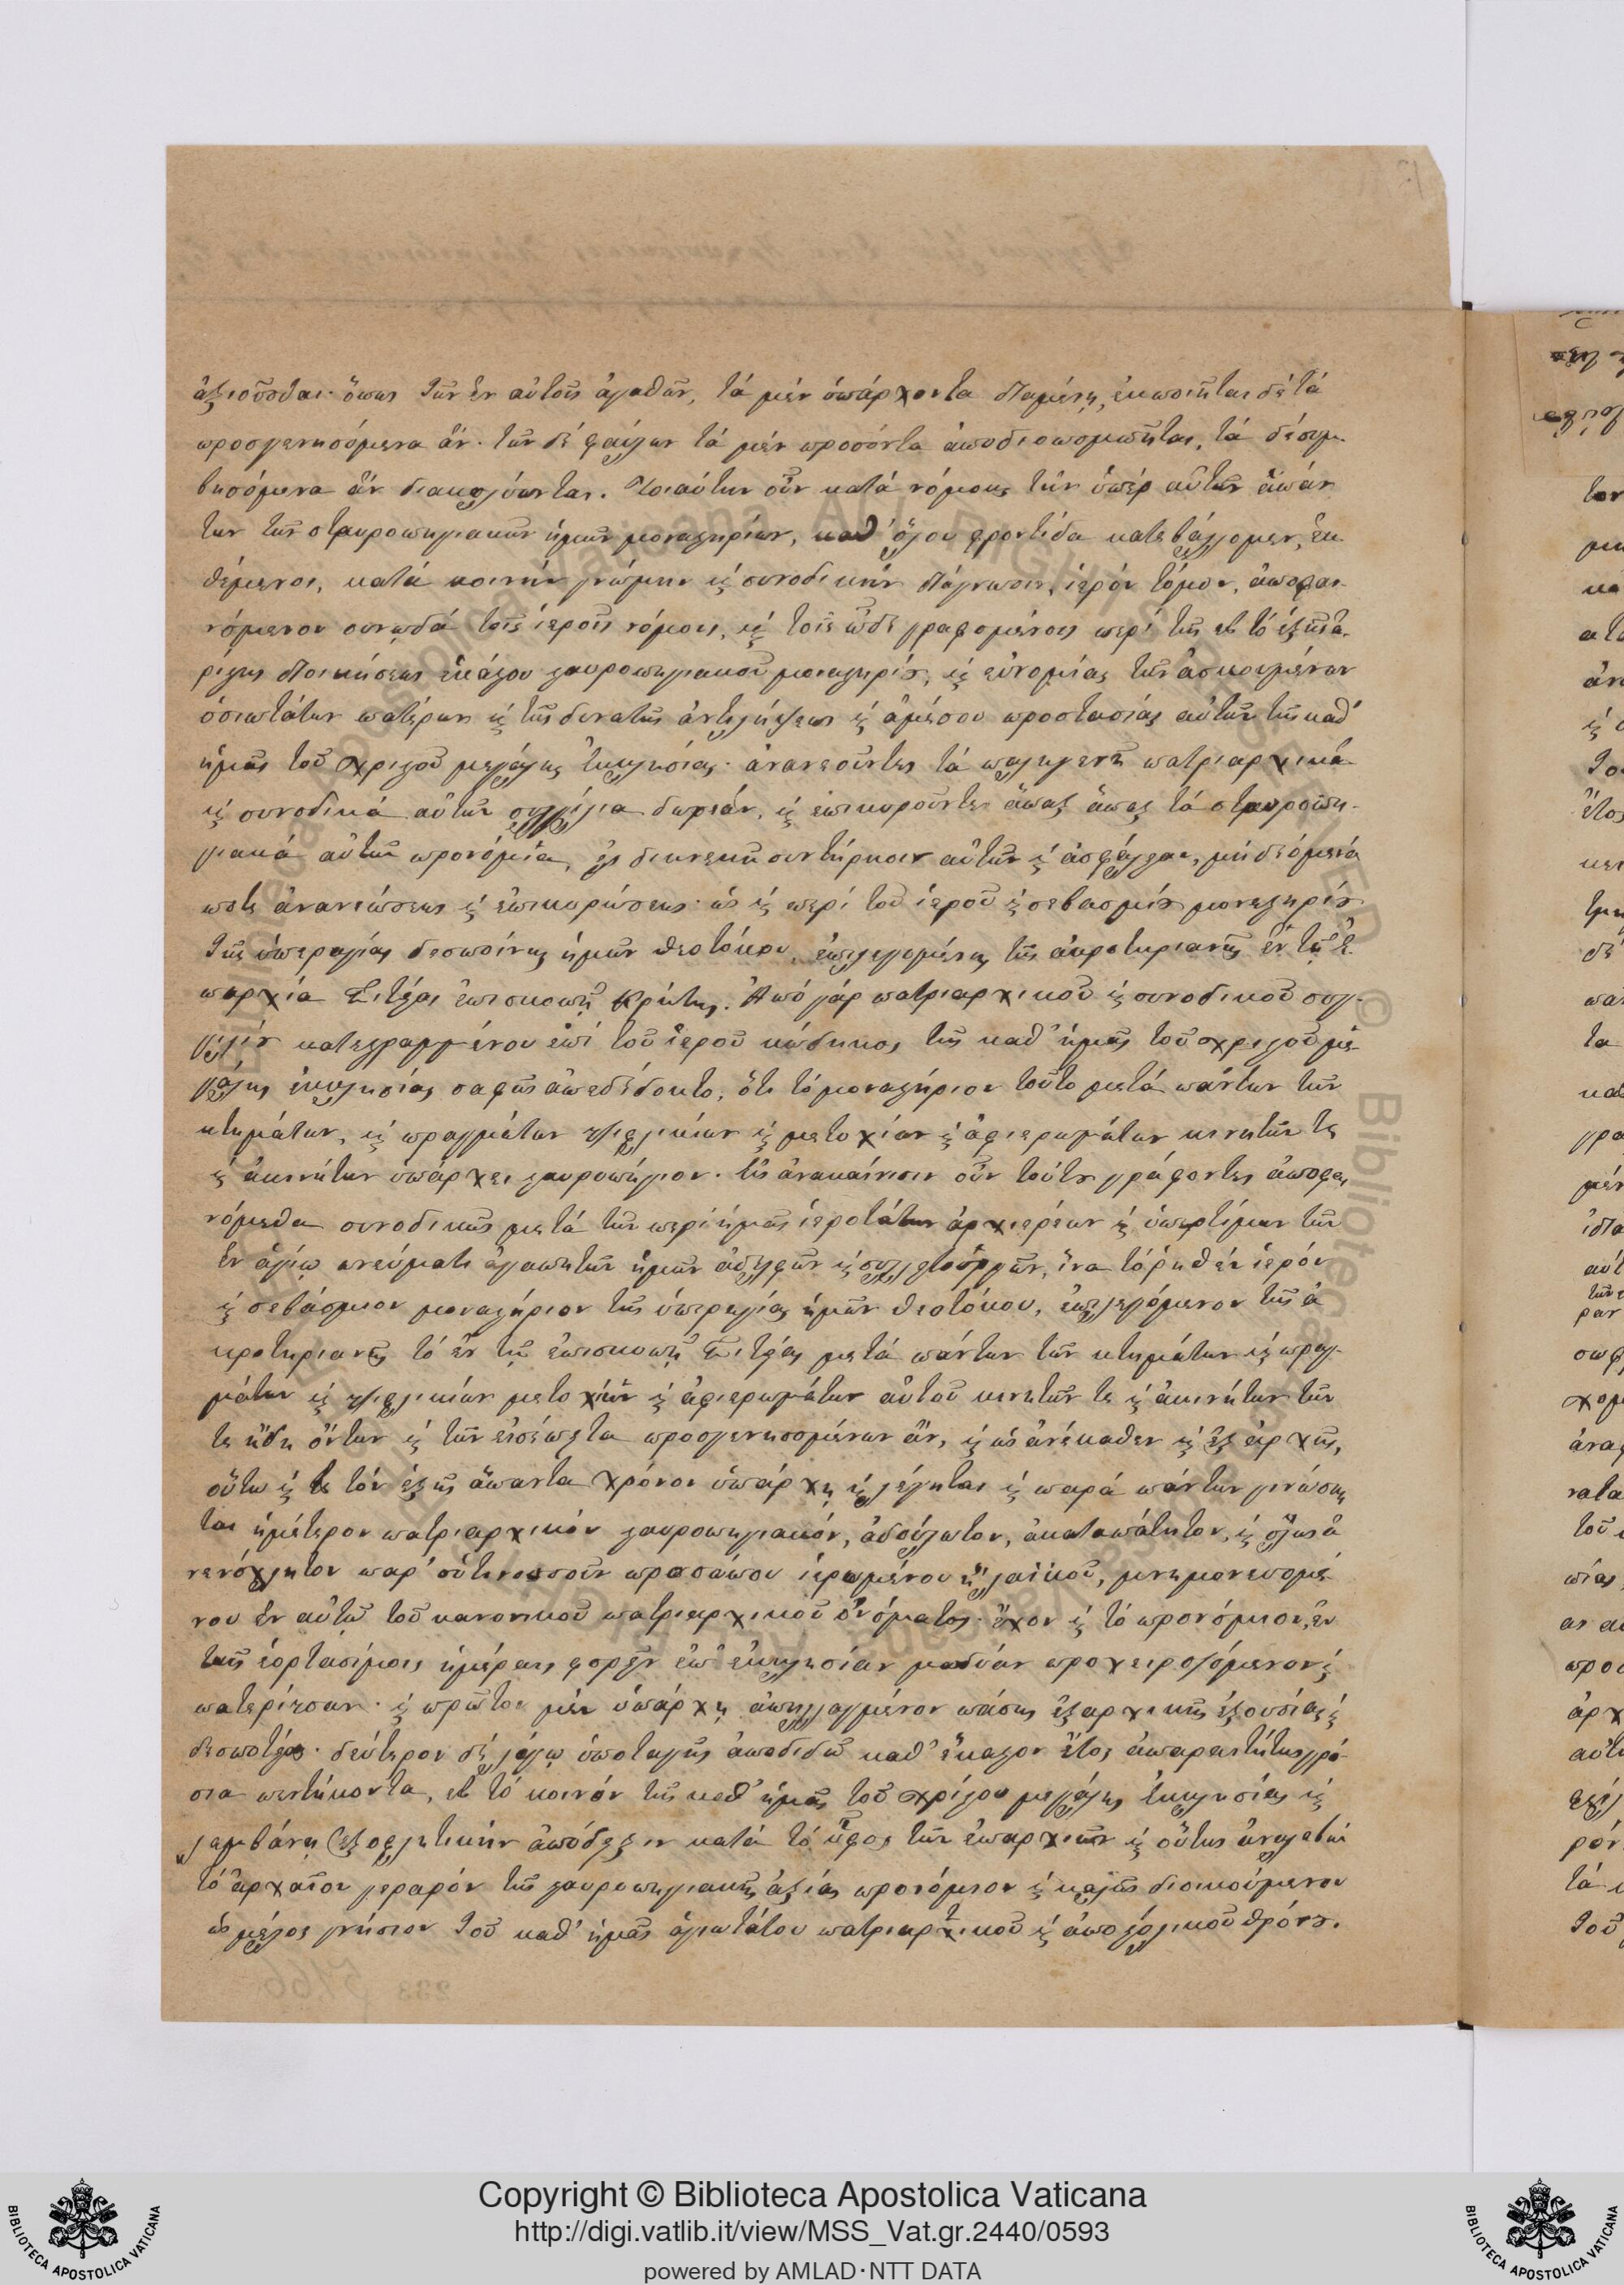 ἀξιοῦσθαι· ὅπως τῶν ἐν αὐτοῖς ἀγαθῶν, τὰ μὲν ὑπάρχοντα διαμένῃ, ἐκποιῆται δὲ τὰ
προσγενησόμενα ἄν· τῶν δὲ φαύλων τὰ μὲν προσόντα ἀποδιοπομπῆται, τὰ δὲ συμ-
βησόμενα ἂν διακωλύωνται. Τοιαύτην οὖν κατὰ νόμους τὴν ὑπὲρ αὐτῶν ἁπάν
των τῶν σταυροπηγιακῶν ἡμῶν μοναστηρίων, καθ' ὅλου φροντίδα καταβάλλομεν, ἐκ
θέμενοι, κατὰ κοινὴν γνώμην καὶ συνοδικὴν διάγνωσιν, ἱερὸν τόμον, ἀποφαι-
νόμενον συνῳδὰ τοῖς ἱεροῖς νόμοις, καὶ τοῖς ὧδε γραφομένοις περὶ τῆς εἰς τὸ ἑξῆς
διοικήσεως ἑκάστου σταυροπηγιακοῦ μοναστηρίου, καὶ εὐνομίας τῶν ἀσκουμένων
ὁσιωτάτων πατέρων καὶ τῆς δυνατῆς ἀντιλήψεως καὶ ἀμέσου προστασίας αὐτῶν τῆς καθ'
ἡμᾶς τοῦ χριστοῦ μεγάλης ἐκκλησίας· ἀνανεοῦντες τὰ παλιγενῆ πατριαρχικὰ
καὶ συνοδικὰ αὐτῶν συγγίλια δωρεάν, καὶ ἐπικυροῦντες ἅπαξ ἅπας τὰ σταυροπη-
γιακὰ αὐτῶν προνόμια, εἰς διηνεκῆ συντήρησιν αὐτῶν καὶ ἀσφάλειαν, μὴ δεόμενά
ποτε ἀνανεώσεως καὶ ἐπικυρώσεως· ὡς καὶ περὶ τοῦ ἱεροῦ καὶ σεβασμίου μοναστηρίου
τῆς ὑπεραγίας δεσποίνης ἡμῶν θεοτόκου, ἐπιλεγομένης τῆς ἀκροτηριανῆς ἐν τῇ ἐ
παρχίᾳ Σιτείας ἐπισκοπῇ Κρήτης. Ἀπὸ γὰρ πατριαρχικοῦ καὶ συνοδικοῦ συγ-
γιλίου κατεγραμμένου ἐπὶ τοῦ ἱεροῦ κώδηκος τῆς καθ' ἡμᾶς τοῦ χριστοῦ με
γάλης ἐκκλησίας σαφῶς ἀπεδέδεικτο, ὅτι τὸ μοναστήριον τοῦτο μετὰ πάντων τῶν
κτημάτων, καὶ πραγμάτων τζιφλικίων καὶ μετοχίων καὶ ἀφιερωμάτων κινητῶν τε
καὶ ἀκινήτων ὑπάρχει σταυροπήγιον. Εἰς ἀνακαίνισιν οὖν τούτου γράφοντες ἀποφαι
νόμεθα συνοδικῶς μετὰ τῶν περὶ ἡμᾶς ἱεροτάτων ἀρχιερέων καὶ ὑπερτίμων τῶν
ἐν ἁγίῳ πνεύματι ἀγαπητῶν ἡμῶν ἀδελφῶν καὶ συλλειτουργῶν, ἵνα τὸ ῥηθὲν ἱερὸν
καὶ σεβάσμιον μοναστήριον τῆς ὑπεραγίας ἡμῶν θεοτόκου, ἐπιλεγόμενον τῆς ἀ
κροτηριανῆς τὸ ἐν τῇ ἐπισκοπῇ Σιτείας μετὰ πάντων τῶν κτημάτων καὶ πραγ-
μάτων καὶ τζιφλικίων μετοχίων καὶ ἀφιερωμάτων αὐτοῦ κινητῶν τε καὶ ἀκινήτων τῶν
τε ἤδη ὄντων καὶ τῶν εἰσέπειτα προσγενησομένων ἄν, καὶ ὡς ἀνέκαθεν καὶ ἐξ ἀρχῆς,
οὕτω καὶ εἰς τὸν ἑξῆς ἅπαντα χρόνον ὑπάρχῃ καὶ λέγηται καὶ παρὰ πάντων γινώσκη
ται ἡμέτερον πατριαρχικὸν σταυροπηγιακόν, ἀδούλωτον, ἀκαταπάτητον, καὶ ὅλως ἀ
νενόχλητον παρ' οὑτινοσοῦν προσώπου ἱερωμένου ἢ λαϊκοῦ, μνημονευομέ
νου ἐν αὐτῷ τοῦ κανονικοῦ πατριαρχικοῦ ὀνόματος· ἔχον καὶ τὸ προνόμιον, ἐν
ταῖς ἑορτασίμοις ἡμέραις φορεῖν ἐπ' ἐκκλησίαν μανδύαν προχειριζόμενον καὶ
πατερίτσαν· καὶ πρῶτον μὲν ὑπάρχῃ ἀπηλλαγμένον πάσης ἐξαρχικῆς ἐξουσίας καὶ
δεσποτείας· δεύτερον δὲ λόγῳ ὑποταγῆς ἀποδιδῷ καθ' ἕκαστον ἔτος ἀπαραιτήτως γρό-
σια πεντήκοντα, εἰς τὸ κοινὸν τῆς καθ' ἡμᾶς τοῦ χριστοῦ μεγάλης ἐκκλησίας καὶ
λαμβάνῃ ἐξοφλητικὴν ἀπόδειξιν κατὰ τὸ ὕφος τῶν ἐπαρχιῶν καὶ οὕτως ἀναλαβὸν
τὸ ἀρχαῖον γεραρὸν τῆς σταυροπηγιακῆς ἀξίας προνόμιον καὶ καλῶς διοικούμενον
ὡς μέλος γνήσιον τοῦ καθ' ἡμᾶς ἁγιωτάτου πατριαρχικοῦ καὶ ἀποστολικοῦ θρόνου.
Copyright © Biblioteca Apostolica Vaticana
http://digi.vatlib.it/view/MSS_Vat.gr.2440/0593
powered by AMLAD·NTT DATA
BIBLIOTECA APOSTOLICA VATICANA
BIBLIOTECA APOSTOLICA VATICANA